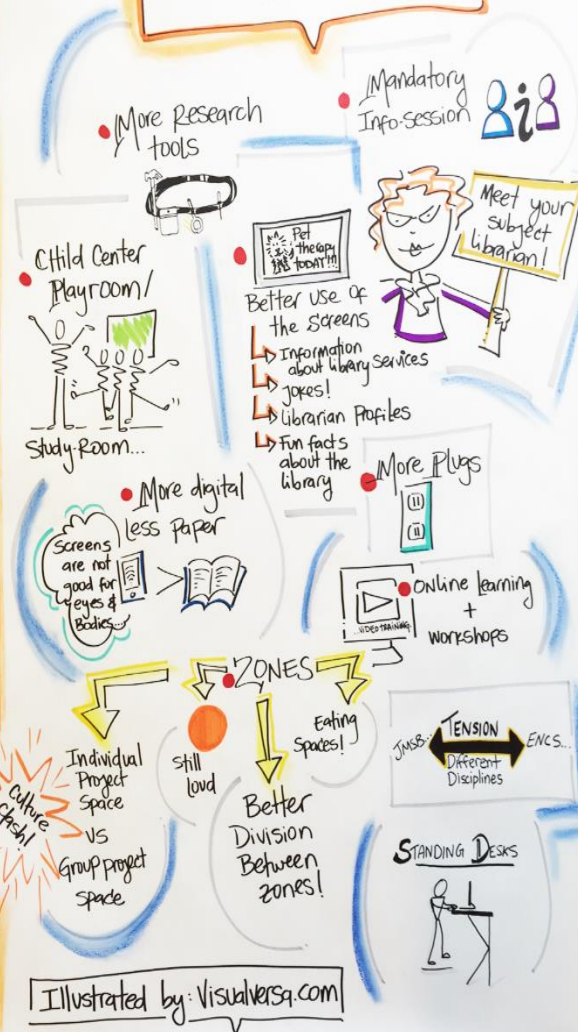 More Research
tools
Mandatory
Info-Session
i
Meet your
subject
librarian!
Child Center
Playroom/
Study-Room...
Pet
therapy
TODAY!!!
Better use of
the screens
Information
about library services
Jokes!
Librarian Profiles
Fun facts
about the
library
More Plugs
More digital
less paper
Screens
are not
good for
eyes &
Bodies...
>
Online Learning
+
workshops
...VIDEO TRAINING...
ZONES
Individual
Project
Space
VS
Group project
space
Culture
Clash!
Still
loud
Better
Division
Between
zones!
Eating
Spaces!
JMSB...
TENSION
ENCS...
Different
Disciplines
STANDING DESKS
Illustrated by: Visualversa.com